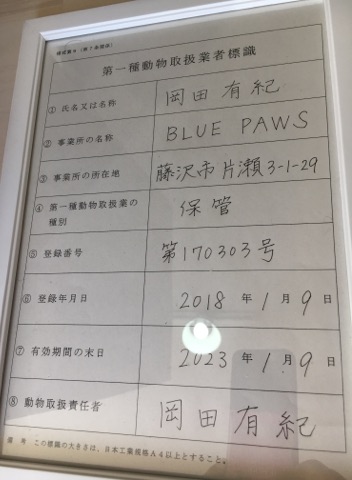 様式第9（第7条関係）
第一種動物取扱業者標識
① 氏名又は名称 岡田有紀
② 事業所の名称 BLUE PAWS
③ 事業所の所在地 藤沢市片瀬3-1-29
④ 第一種動物取扱業の
種別 保管
⑤ 登録番号 第170303号
⑥ 登録年月日 2018年1月9日
⑦ 有効期間の末日 2023年1月9日
⑧ 動物取扱責任者 岡田有紀
備 考 この標識の大きさは、日本工業規格A4以上とすること。